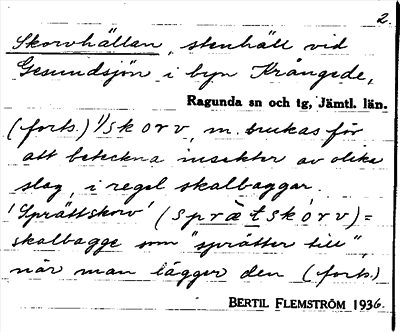 2.
Skorvhällan, stenhäll vid
Gesundsjön i byn Krångede,
Ragunda sn och tg, Jämtl. län.
(forts.) 1/skorv, m. brukas för
att beteckna insekter av olika
slag, i regel skalbaggar.
'Sprättskorv' (sprätskórv) =
skalbagge som "sprätter till",
när man lägger den (forts.)
BERTIL FLEMSTRÖM 1936.